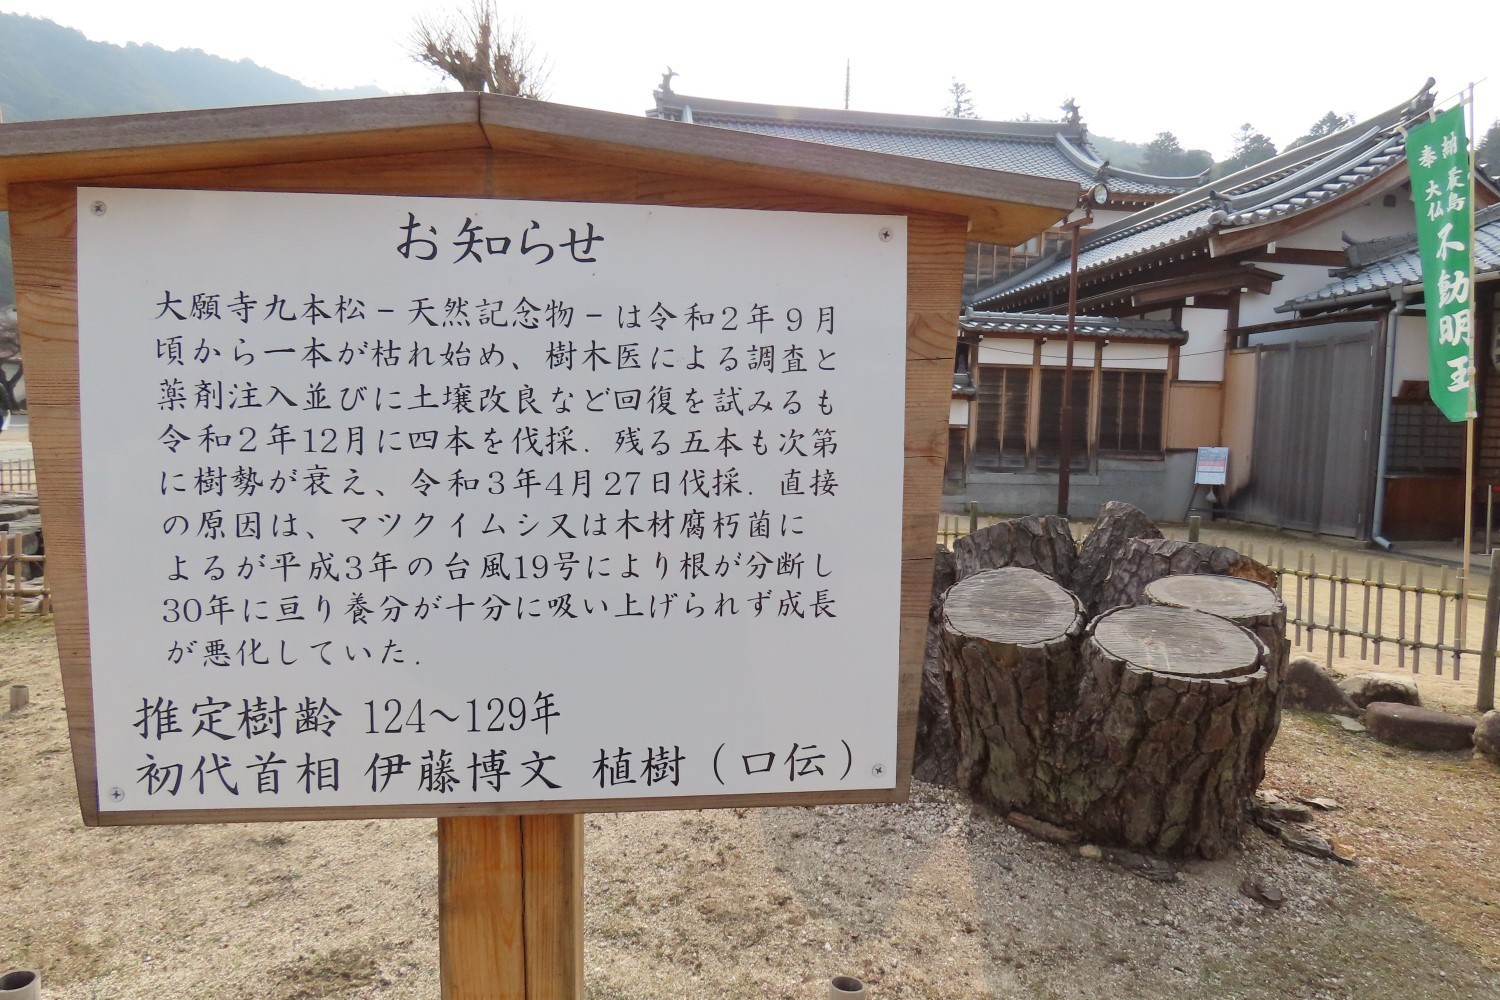 お知らせ
大願寺九本松－天然記念物－は令和2年9月
頃から一本が枯れ始め、樹木医による調査と
薬剤注入並びに土壌改良など回復を試みるも
令和2年12月に四本を伐採．残る五本も次第
に樹勢が衰え、令和3年4月27日伐採．直接
の原因は、マツクイムシ又は木材腐朽菌に
よるが平成3年の台風19号により根が分断し
30年に亘り養分が十分に吸い上げられず成長
が悪化していた．
推定樹齢 124～129年
初代首相 伊藤博文 植樹（口伝）
奉納
厳島
大仏
不動明王